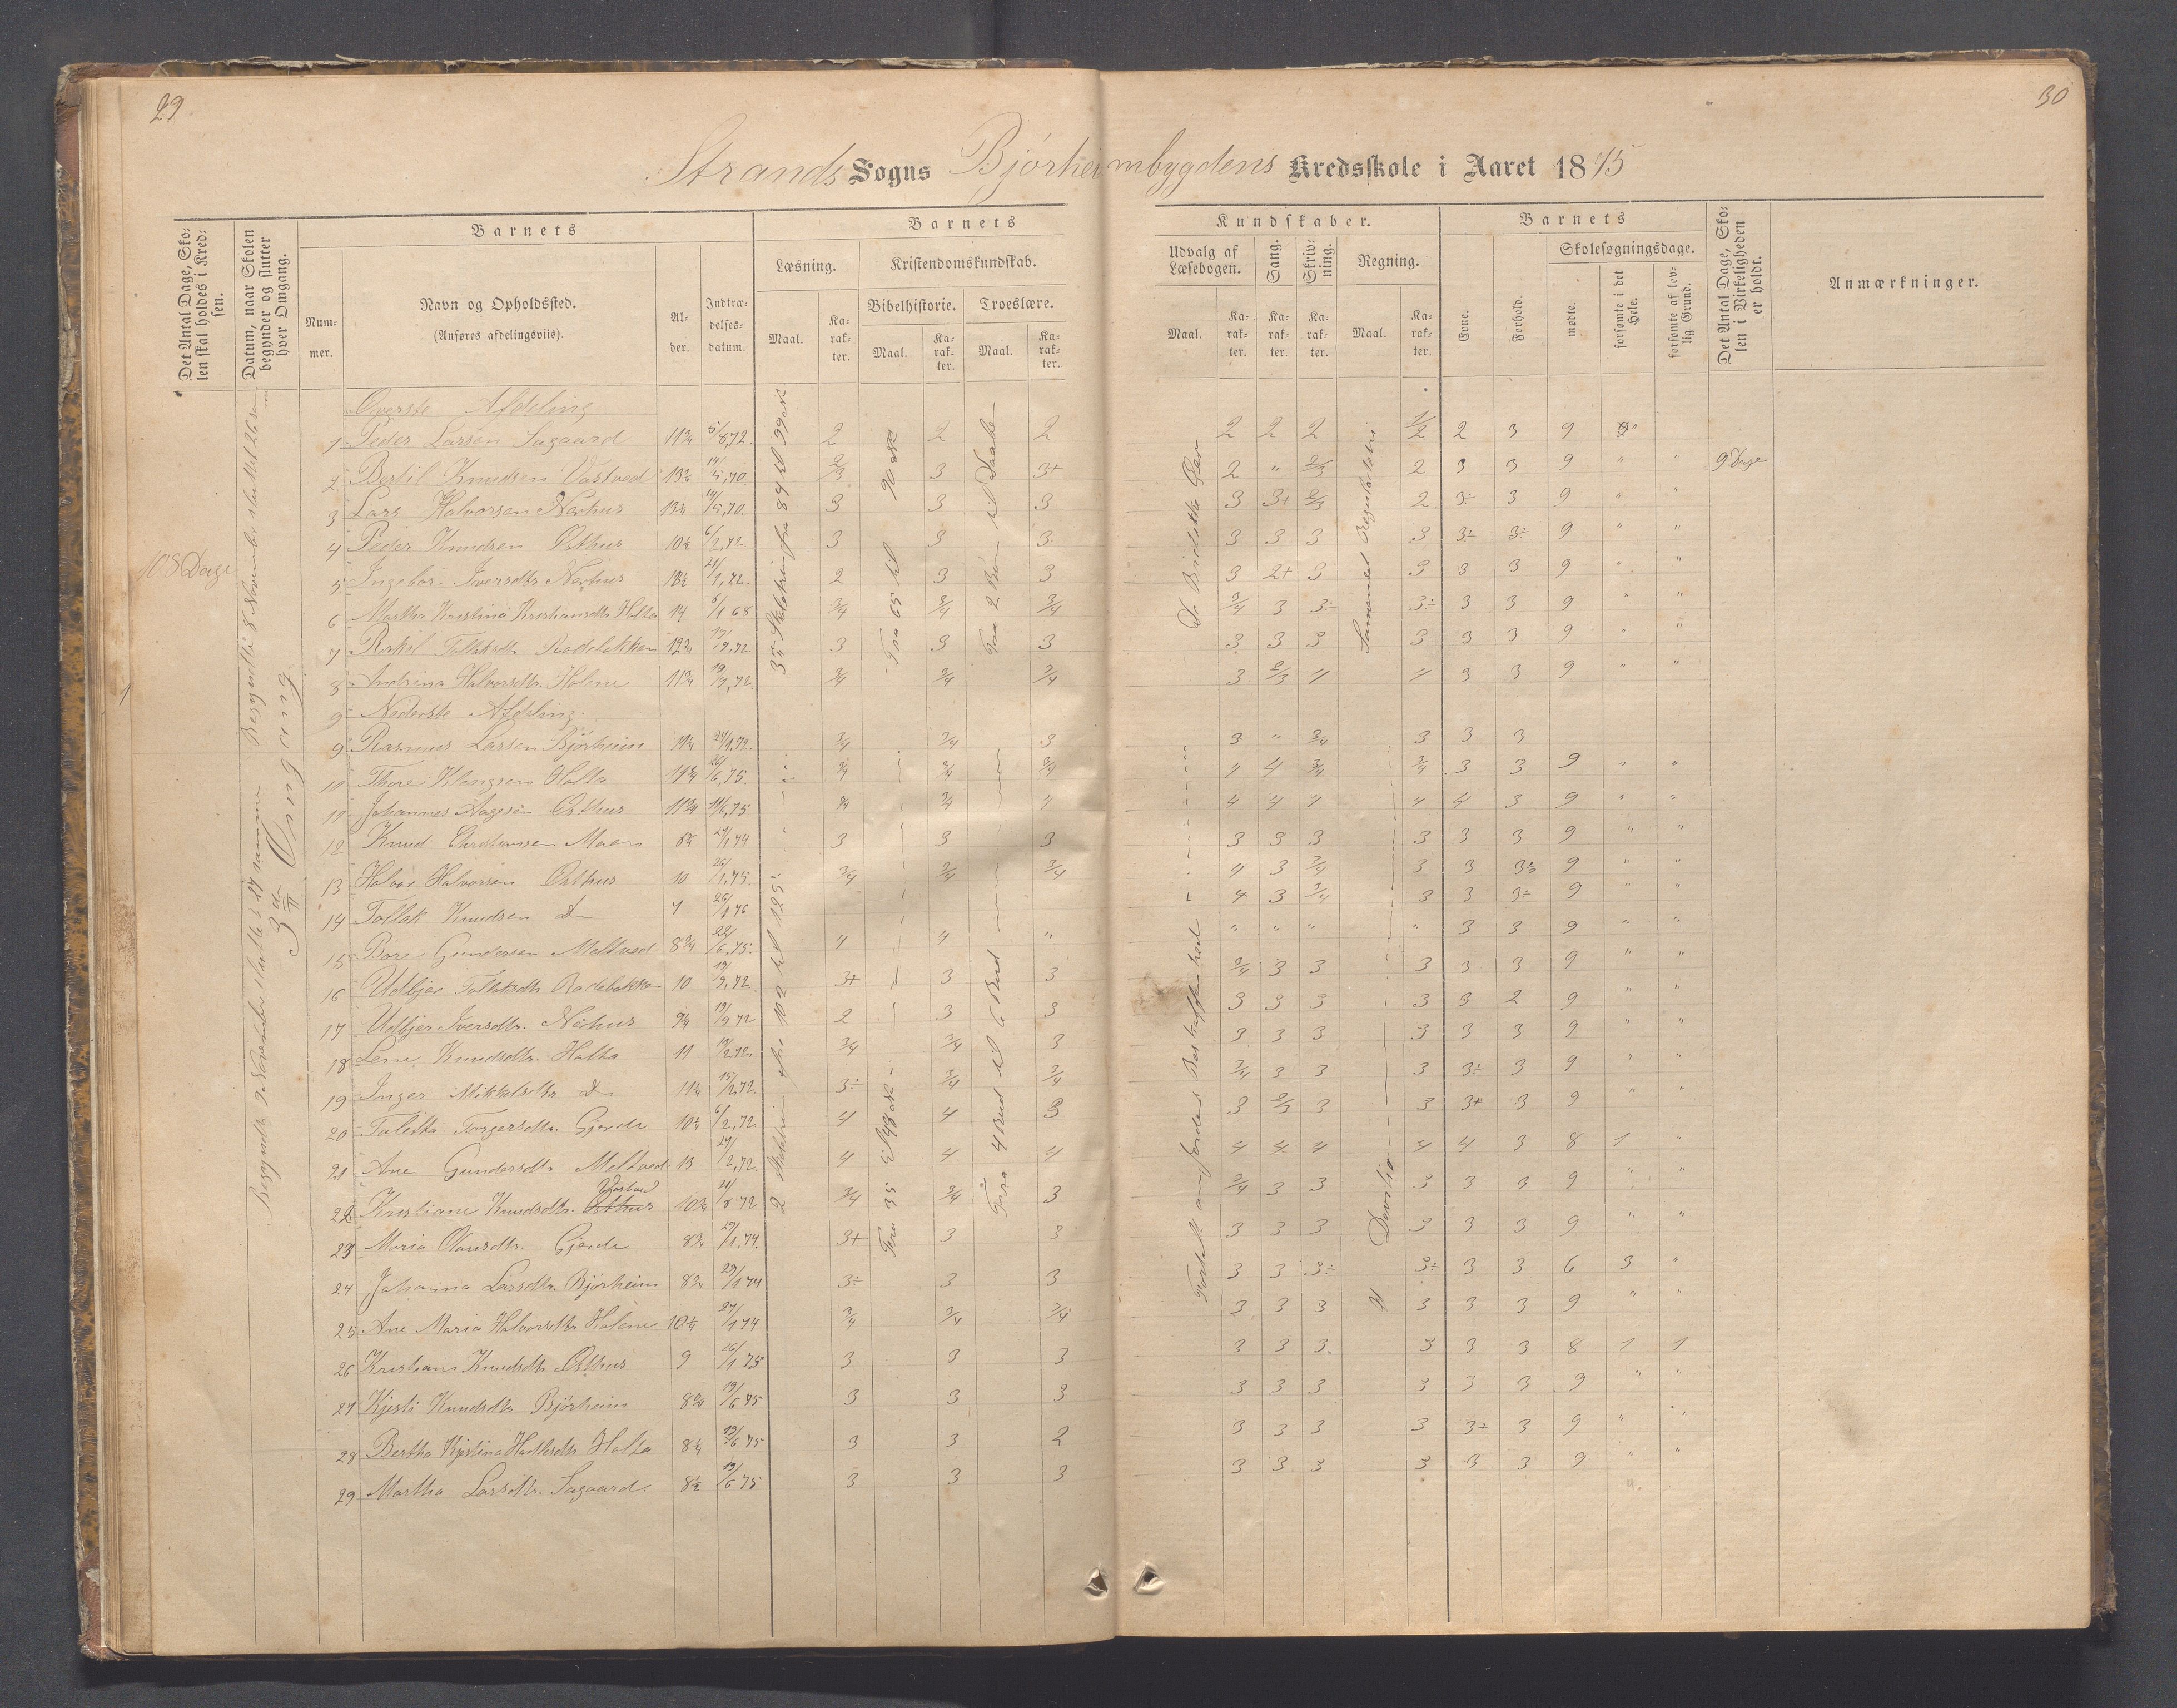 29
30
Strands Sogns Bjørheimbygdens Kredsskole i Aaret 1875
Det Antal Dage, Skolen skal holdes i Kredsen.
Datum, naar Skolen begynder og slutter hver Omgang.
Barnets
Nummer.
Navn og Opholdssted.
(Anføres afdelingsviis).
Alder.
Indtrædelsesdatum.
Barnets
Læsning.
Kristendomskundskab.
Maal.
Karakter.
Bibelhistorie.
Troeslære.
Maal.
Karakter.
Maal.
Karakter.
Kundskaber.
Udvalg af Læsebogen.
Sang.
Skrivning.
Regning.
Maal.
Karakter.
Karakter.
Karakter.
Maal.
Karakter.
Barnets
Evne.
Forhold.
Skolesøgningsdage.
mødte.
forsømte i det Hele.
forsømte af lovlig Grund.
Det Antal Dage, Skolen i Virkeligheden er holdt.
Anmærkninger.
108 Dage
3die Omgang
Øverste Afdeling
1 Peder Larsen Sagaard 11¾ 5/8,72. 2 2 2 2 2 2 1/2 2 3 9
2 Bertil Knudsen Vastved 13¾ 14/5,70. 2/3 3 3+ 2 " 2/3 2 3 3 9 " " 9 Dage
3 Lars Halvorsen Nøhus 13¼ 14/5,70. 3 3 3 3 3+ 2/3 2 3÷ 3 9 " "
4 Peder Knudsen Østhus 10½ 6/2,72. 3 3 3 3 3 3 3 3÷ 3÷ 9 " "
5 Ingebor Iversdtr. Nøhus 2 3 3 3 2+ 3 3 3 3 9 " "
6 Martha Kristina Kristiansdtr. Holta 14 6/1 68 3/4 3/4 3/4 3/4 3 3÷ 3÷ 3 3 9 " "
7 Tollaksdtr. 12¾ 3 3 3 3 3 3 3 3 3 9 " "
8 Andrina Halvorsdtr. Holme 11¾ 3/4 3/4 3/4 3 2/3 4 4 3 3 9 " "
9 Nederste Afdeling.
9 Rasmus Larsen Bjørheim 11¼ 24/1,72. 3/4 3/4 3 3 " 3/4 3 3 3
10 Thore Klengsen Holta 11¾ 26/6,75. 3/4 3/4 3/4 4 4 3/4 3/4 3 3 9 " "
11 Johannes Aagesen Østhus 11¾ 11/6,75. 3/4 3/4 4 4 4 4 4 4 3 9 " "
12 Knud Christiansen Moen 8¾ 27/1 74 3 3 3 3 3 3 3 3 3 9 " "
13 Halvor Halvorsen Østhus 10 26/1,75. 3/4 3/4 3/4 4 3 3/4 3 3 3÷ 9 " "
14 Tollak Knudsen Do 7 26/1 76 4 3 3/4 3 3 3÷ 9 " "
15 Bore Gundersen Meltved 8¾ 22/6,75. 4 4 " " " " " 3 3 9 " "
16 Udbjør Tollaksdtr. 10 19/9,72 3+ 3 3 3/4 3 3 3 3 3 9 " "
17 Udbjør Iversdtr. Nøhus 9¼ 19/9 72 2 3 3 3 3 3 3 3 2 9 " "
18 Lene Knudsdtr. Holta 11 3/4 3/4 3 3 3 3 3 3 3 9 " "
19 Inger Mikkelsdtr. Do 11¼ 15/2,72. 3÷ 3/4 3/4 3/4 3 3 3 3÷ 3 9 " "
20 Talitha Torgersdtr. Gjerde 10¼ 6/2,72. 4 4 3 3 2/3 3 3 3+ 3 9 " "
21 Ane Gundersdtr. Meltved 13 29/2,72. 4 4 4 4 4 4 4 4 3 8 1 "
22 Kristiane Knudsdtr. Østhus Vastved 10¾ 3/4 3/4 3 3/4 3 3 3 3 3 9 " "
23 Maria Olausdtr. Gjerde 8¾ 29/1,74. 3+ 3 3 3 3 3 3 3 3 9 " "
24 Johanna Larsdtr. Bjørheim 8¾ 29/1 74 3÷ 3 3 3 3 3÷ 3÷ 3 3 6 3 "
25 Ane Maria Halvorsdtr. Holme 10¼ 27/1 74 3/4 3/4 3/4 3 3 3 3 3 3 9 " "
26 Kristians Knudsdtr. Østhus 9 26/1 75 3 3 3 3 3 3 3 3 3 8 1 1
27 Kjersti Knudsdtr. Bjørheim 8¾ 19/6 75 3 3 3 3 3 3 3 3 3 9 " "
28 Bertha Kjestina Holta 8¼ 19/6 75 3 3 2 3 3 3 3 3+ 3 9 " "
29 Martha Larsdtr. Sagaard. 8½ 19/6 75 3 3 3 3 3 3 3 3 3 9 " "